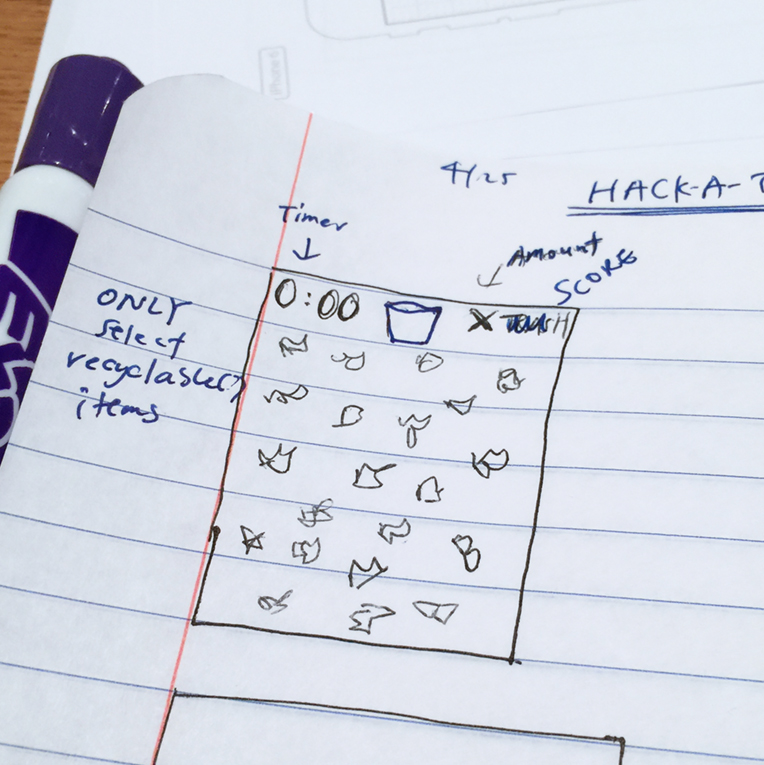 iPhone 6
4/25
HACK-A-T
Timer
Amount
SCORE
0:00
X
ONLY
select
items